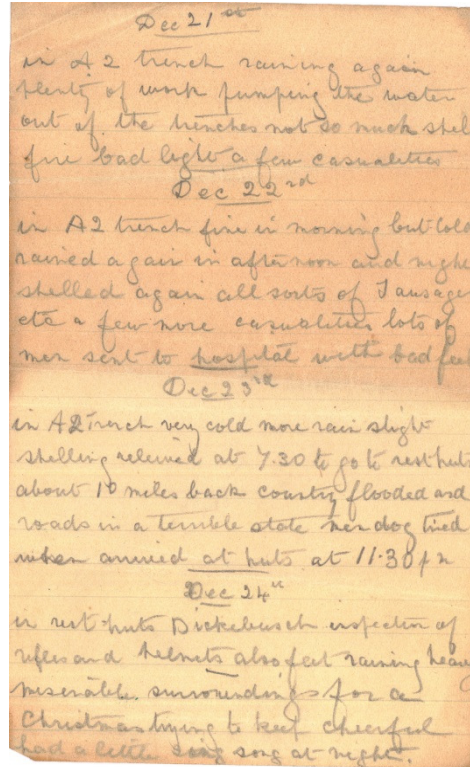 Dec 21st
in A2 trench raining again
plenty of work pumping the water
out of the trenches not so much shell
fire bad light a few casualities
Dec 22nd
in A2 trench fine in morning but cold
rained again in afternoon and night
shelled again all sorts of Sausages
etc a few more casualities lots of
men sent to hospital with bad feet
Dec 23rd
in A2 trench very cold more rain slight
shelling relieved at 7.30 to go to rest huts
about 10 miles back country flooded and
roads in a terrible state men dog tired
when arrived at huts at 11.30 pm
Dec 24th
in rest huts Dickebusch inspection of
rifles and helmets also feet raining heavy
miserable surroundings for a
Christmas trying to keep cheerful
had a little sing song at night.